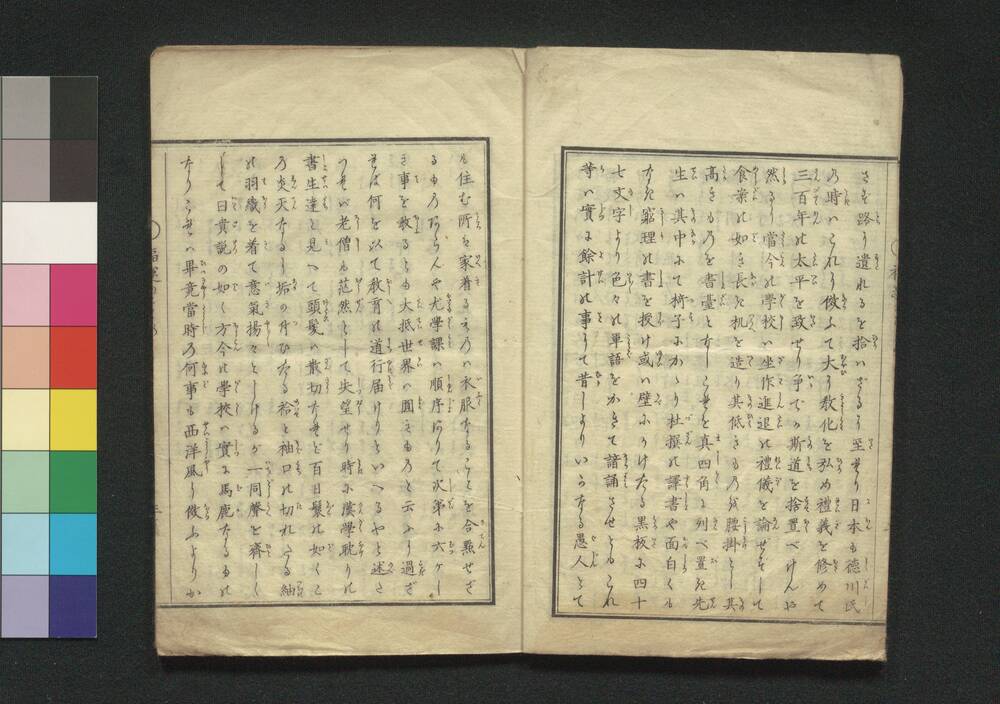 さず路に遺れるを拾いざるに至れり日本も徳川氏
の時いこれに倣ふて大に教化を弘め禮義を修めて
三百年の太平を致せり争での斯道を捨置べけんや
然るに當今の学校い坐作進退の禮儀を論ぜずして
食案の如き長き机を造り其低きものを腰掛とし其
高きものを書臺となしこれを真四角に列べ置き先
生い其中にて椅子にかゝり杜撰の譯書や面白くも
なき窮理の書を授け或い壁にかけたる黒板に四十
七文字より色々の単語をかきて諳誦させとるこれ
等い實に餘計の事にて昔しよりいかなる愚人とて
も住む所を家着るものい衣服なることを合點せざ
るものあらんや尤學課い順序ありて次第に六ケし
き事を教るとも大抵世界い圓きものと云ふに過ぎ
ず何を以て教育の道行届けりといへるやと述
い老僧も茫然として失望せり時に漢學耽りの
書生達と見へて頭髪い散切なれど百日鬘の如くこ
の炎天なるに垢の付ひたる袷と袖口の切れたる紬
の羽織を着て意氣揚々としけるが一同聲を齊しく
して曰貴説の如く方今の学挍い實に馬鹿なるもの
なりこれい畢竟當時の何事も西洋風に倣ふよりか